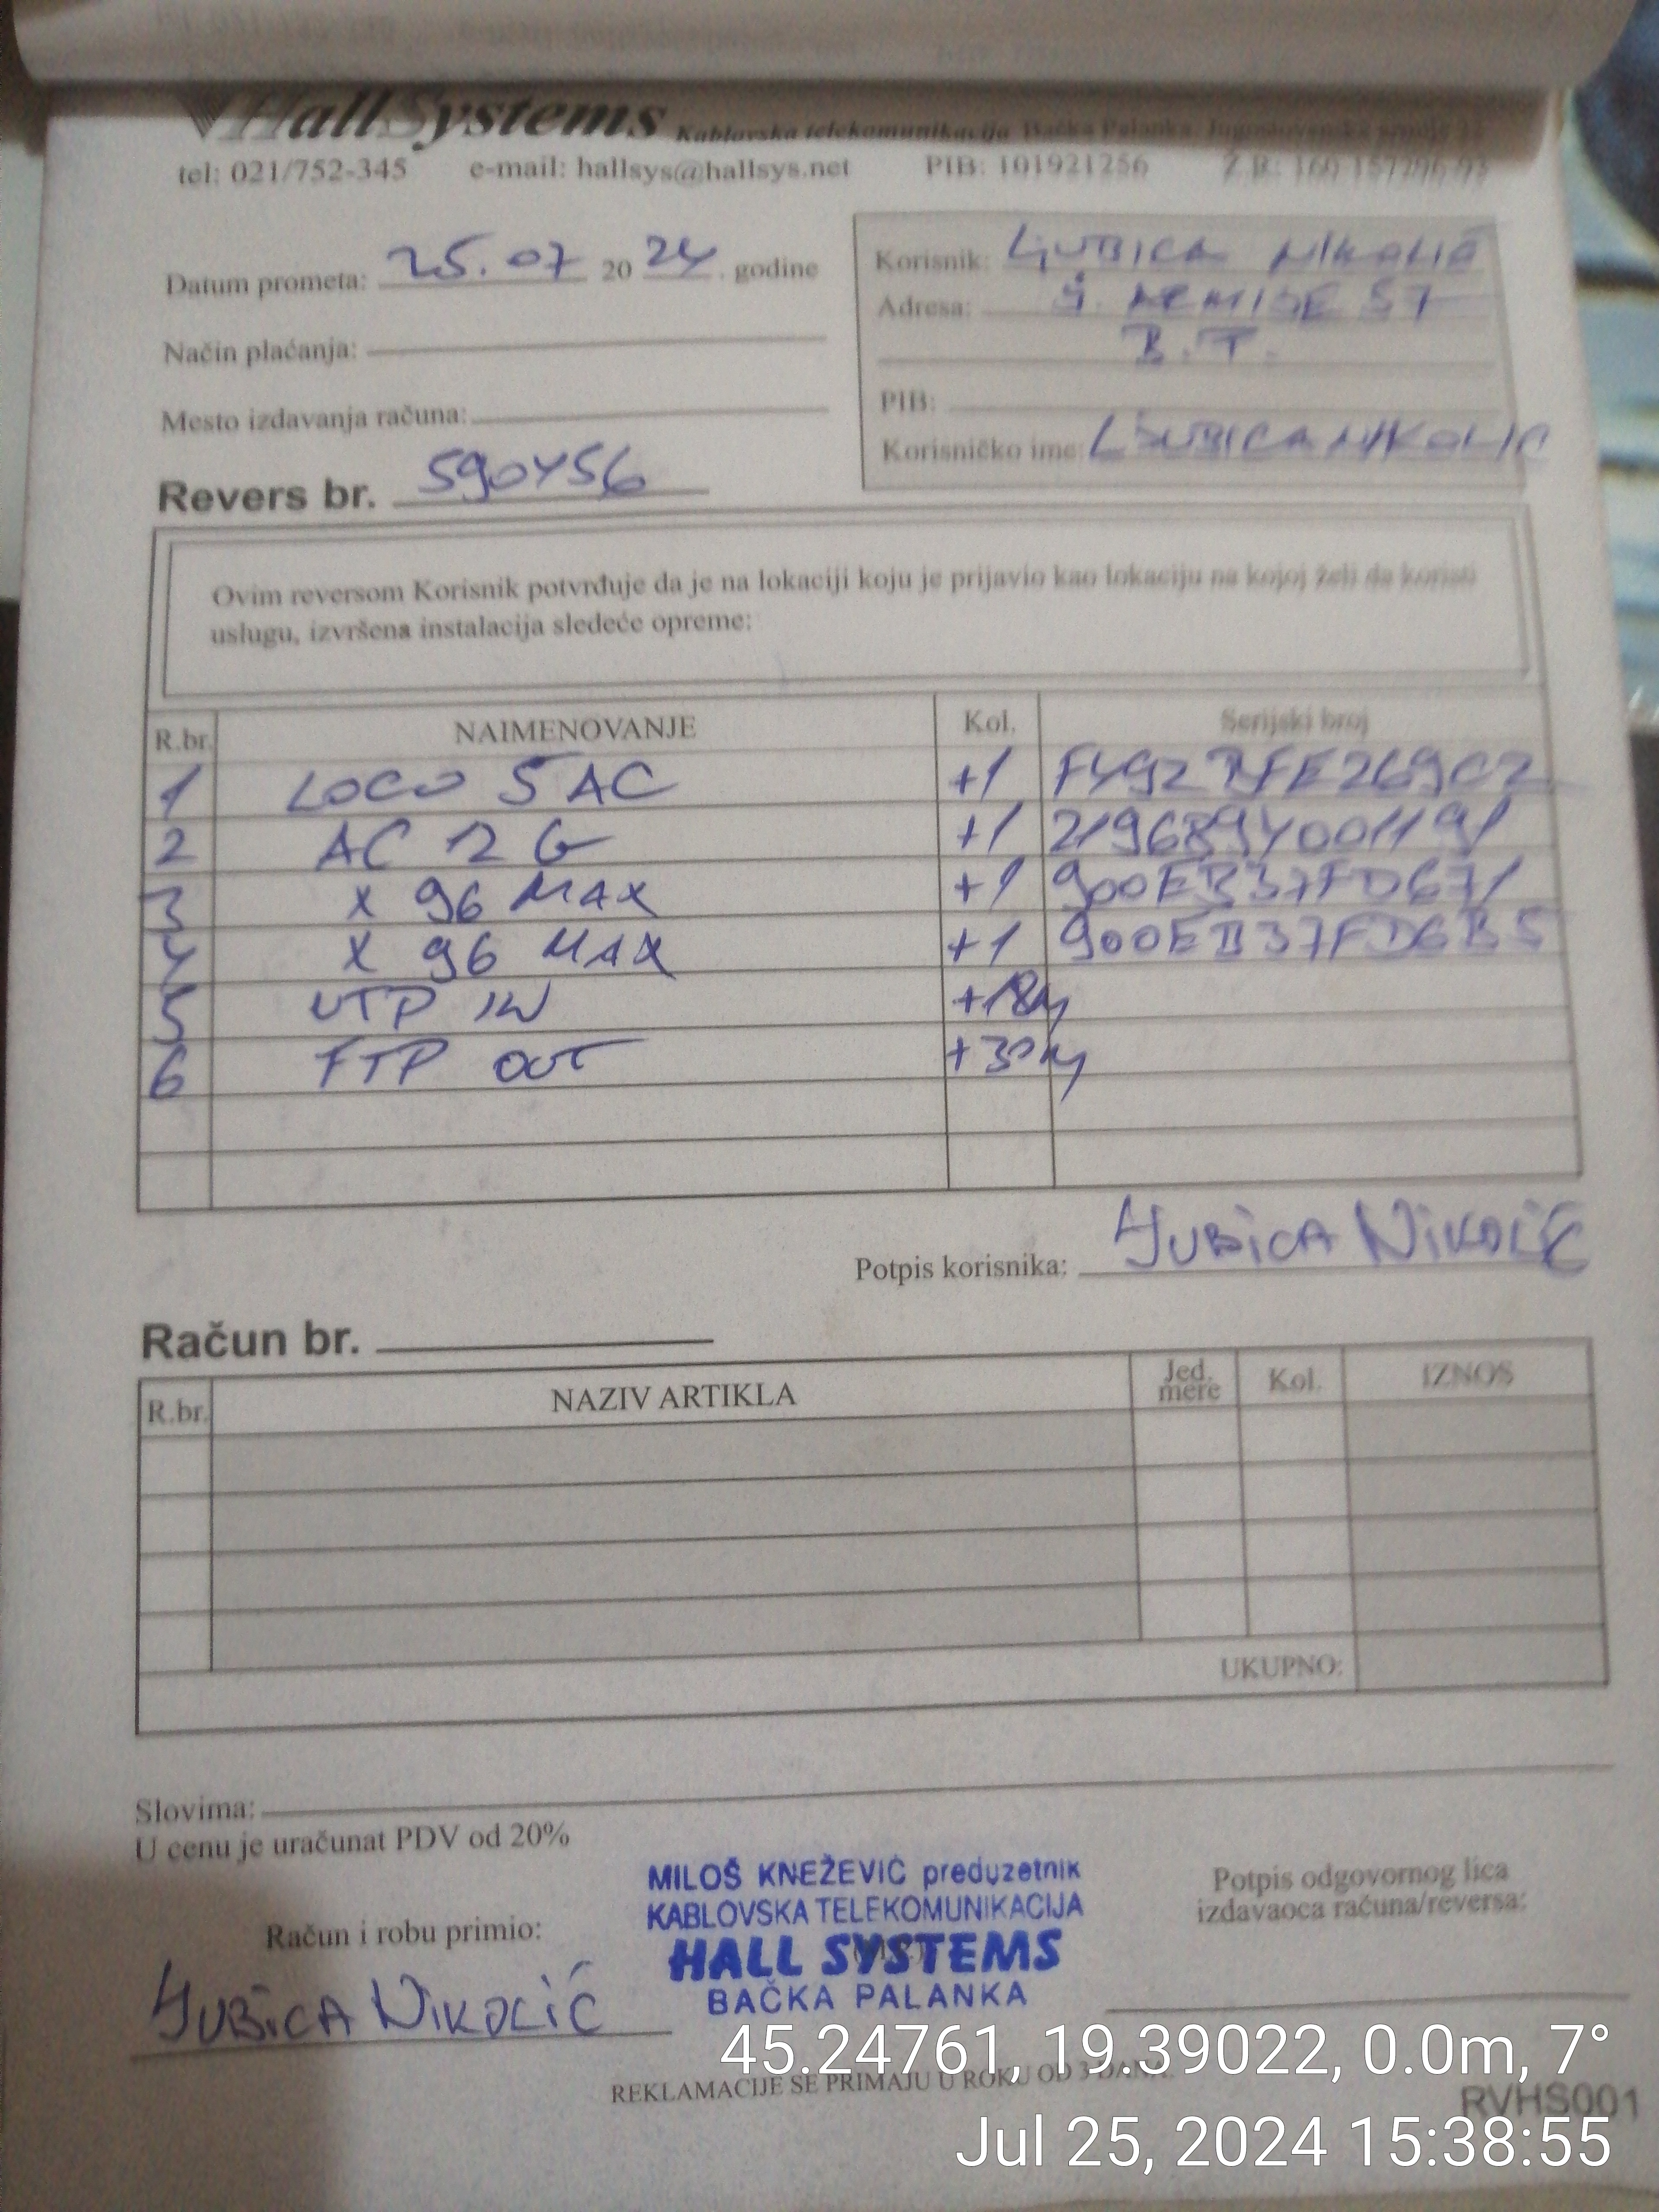 HallSystems Kablovska telekomunikacija Bačka Palanka, Jugoslovenske armije
tel: 021/752-345 e-mail: hallsys@hallsys.net PIB: 101921256 Ž.R: 160-157796-93
Datum prometa: 25.07 2024. godine
Način plaćanja:
Mesto izdavanja računa:
Revers br. 590456
Korisnik: LJUBICA NIKOLIĆ
Adresa: 57
B.T.
PIB:
Korisničko ime: LJUBICANIKOLIC
Ovim reversom Korisnik potvrđuje da je na lokaciji koju je prijavio kao lokaciju na kojoj želi da koristi
uslugu, izvršena instalacija sledeće opreme:
R.br. NAIMENOVANJE Kol. Serijski broj
1 LOCO 5 AC +1 F492BFE269C2
2 AC 12 G +1 2196894001191
3 X 96 MAX +1 900EB37FD671
4 X 96 MAX +1 900EB37FD6B5
5 UTP IN +18m
6 FTP OUT +30m
Potpis korisnika: Ljubica Nikolić
Račun br.
R.br. NAZIV ARTIKLA Jed. mere Kol. IZNOS
UKUPNO:
Slovima:
U cenu je uračunat PDV od 20%
Račun i robu primio:
Ljubica Nikolić
MILOŠ KNEŽEVIĆ preduzetnik
KABLOVSKA TELEKOMUNIKACIJA
HALL SYSTEMS
BAČKA PALANKA
Potpis odgovornog lica
izdavaoca računa/reversa:
45.24761, 19.39022, 0.0m, 7°
REKLAMACIJE SE PRIMAJU U ROKU OD 3 DANA.
RVHS001
Jul 25, 2024 15:38:55